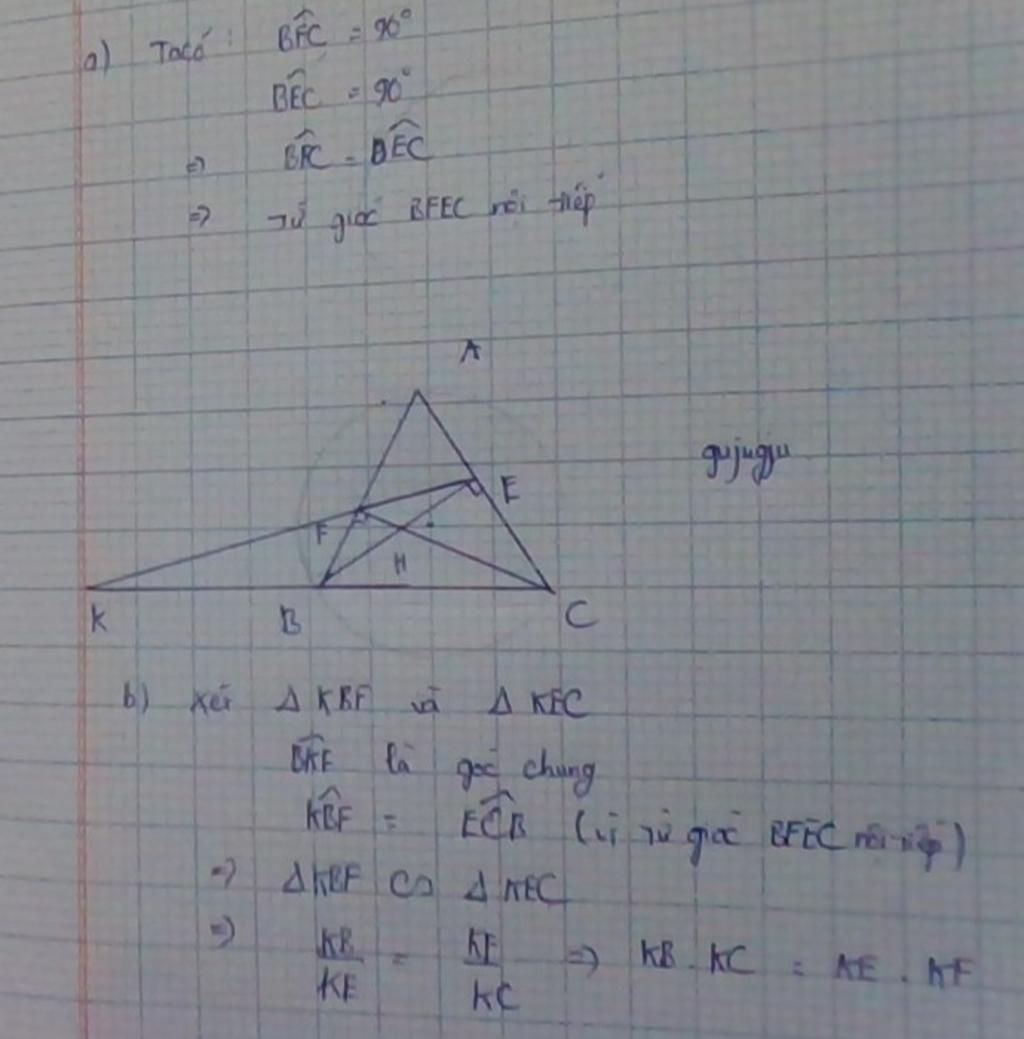 a) Ta có: BFC = 90°
BEC = 90°
=> BFC = BEC
=> Tứ giác BFEC nội tiếp
A
gujugju
E
F
H
K B C
b) Xét Δ KBF và Δ KEC
BKF là góc chung
KBF = ECB (vì tứ giác BFEC nội tiếp)
=> ΔKBF ∽ Δ KEC
=> KB/KE = KF/KC => KB . KC = KE . KF